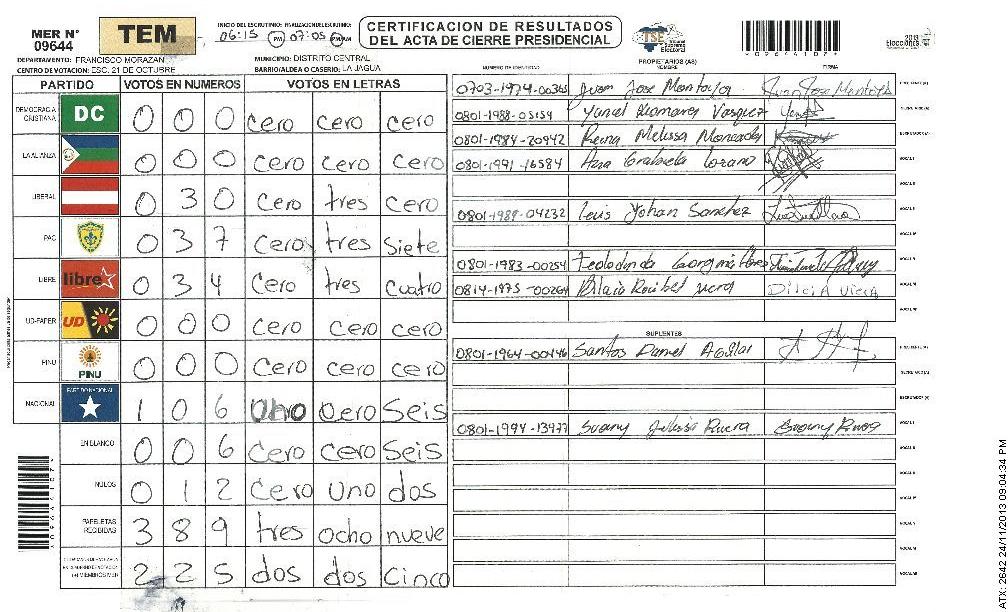 MER N° 09644
TEM
INICIO DEL ESCRUTINIO: FINALIZACION DEL ESCRUTINIO:
06:15 PM 07:05
CERTIFICACION DE RESULTADOS
DEL ACTA DE CIERRE PRESIDENCIAL
TSE Tribunal Supremo Electoral
2013 Elecciones
DEPARTAMENTO: FRANCISCO MORAZAN
MUNICIPIO: DISTRITO CENTRAL
CENTRO DE VOTACION: ESC. 21 DE OCTUBRE
BARRIO/ALDEA O CASERIO: LA JAGUA
PARTIDO VOTOS EN NUMEROS VOTOS EN LETRAS
DEMOCRACIA CRISTIANA DC 0 0 0 cero cero cero
LA ALIANZA 0 0 0 cero cero cero
LIBERAL 0 3 0 cero tres cero
PAC 0 3 7 cero tres siete
LIBRE libre 0 3 4 cero tres cuatro
UD-FAPER UD 0 0 0 cero cero cero
PINU PINU 0 0 0 cero cero cero
NACIONAL PARTIDO NACIONAL 1 0 6 uno cero seis
EN BLANCO 0 0 6 cero cero seis
NULOS 0 1 2 cero uno dos
PAPELETAS RECIBIDAS 3 8 9 tres ocho nueve
2 2 5 dos dos cinco
NUMERO DE IDENTIDAD PROPIETARIOS (AS) NOMBRE FIRMA
0703-1974-00365 Juan Jose Montoya Juan Jose Montoya
0801-1988-05154 Vasquez
0801-1984-20942 Reina Melissa Moncada
0801-1971-16584 Ana Grabiela Lozano
0801-1989-04232 Luis Yohan Sanchez
0801-1983-00254
0814-1975-00264 DILCIA Viera
SUPLENTES
0801-1964-00446 Santos Daniel Aguilar
0801-1994-13477 Suany Julissa Rivera Suany Rivera
ATX: 2642 24/11/2013 09:04:34 PM